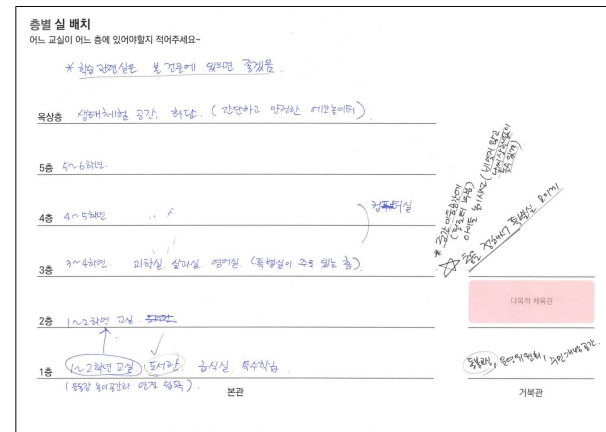 층별 실 배치
어느 교실이 어느 층에 있어야할지 적어주세요~
* 학습 관련실은 본 건물에 있으면 좋겠음.
옥상층 생태체험 공간, 하담. (간단하고 안전한 에코놀이터)
5층 5~6학년.
4층 4~5학년 컴퓨터실
3층 3~4학년. 과학실, 실과실, 영어실. (특별실이 주로 있는 층)
2층 1~2학년 교실. 도서관
1층 1~2학년 교실 도서관. 급식실, 특수학급
(운동장 놀이공간과 연계 필요).
본관
층을 정해서 특별실 모이게
다목적 체육관
돌봄실, 운영위원회, 주민개방공간.
거북관